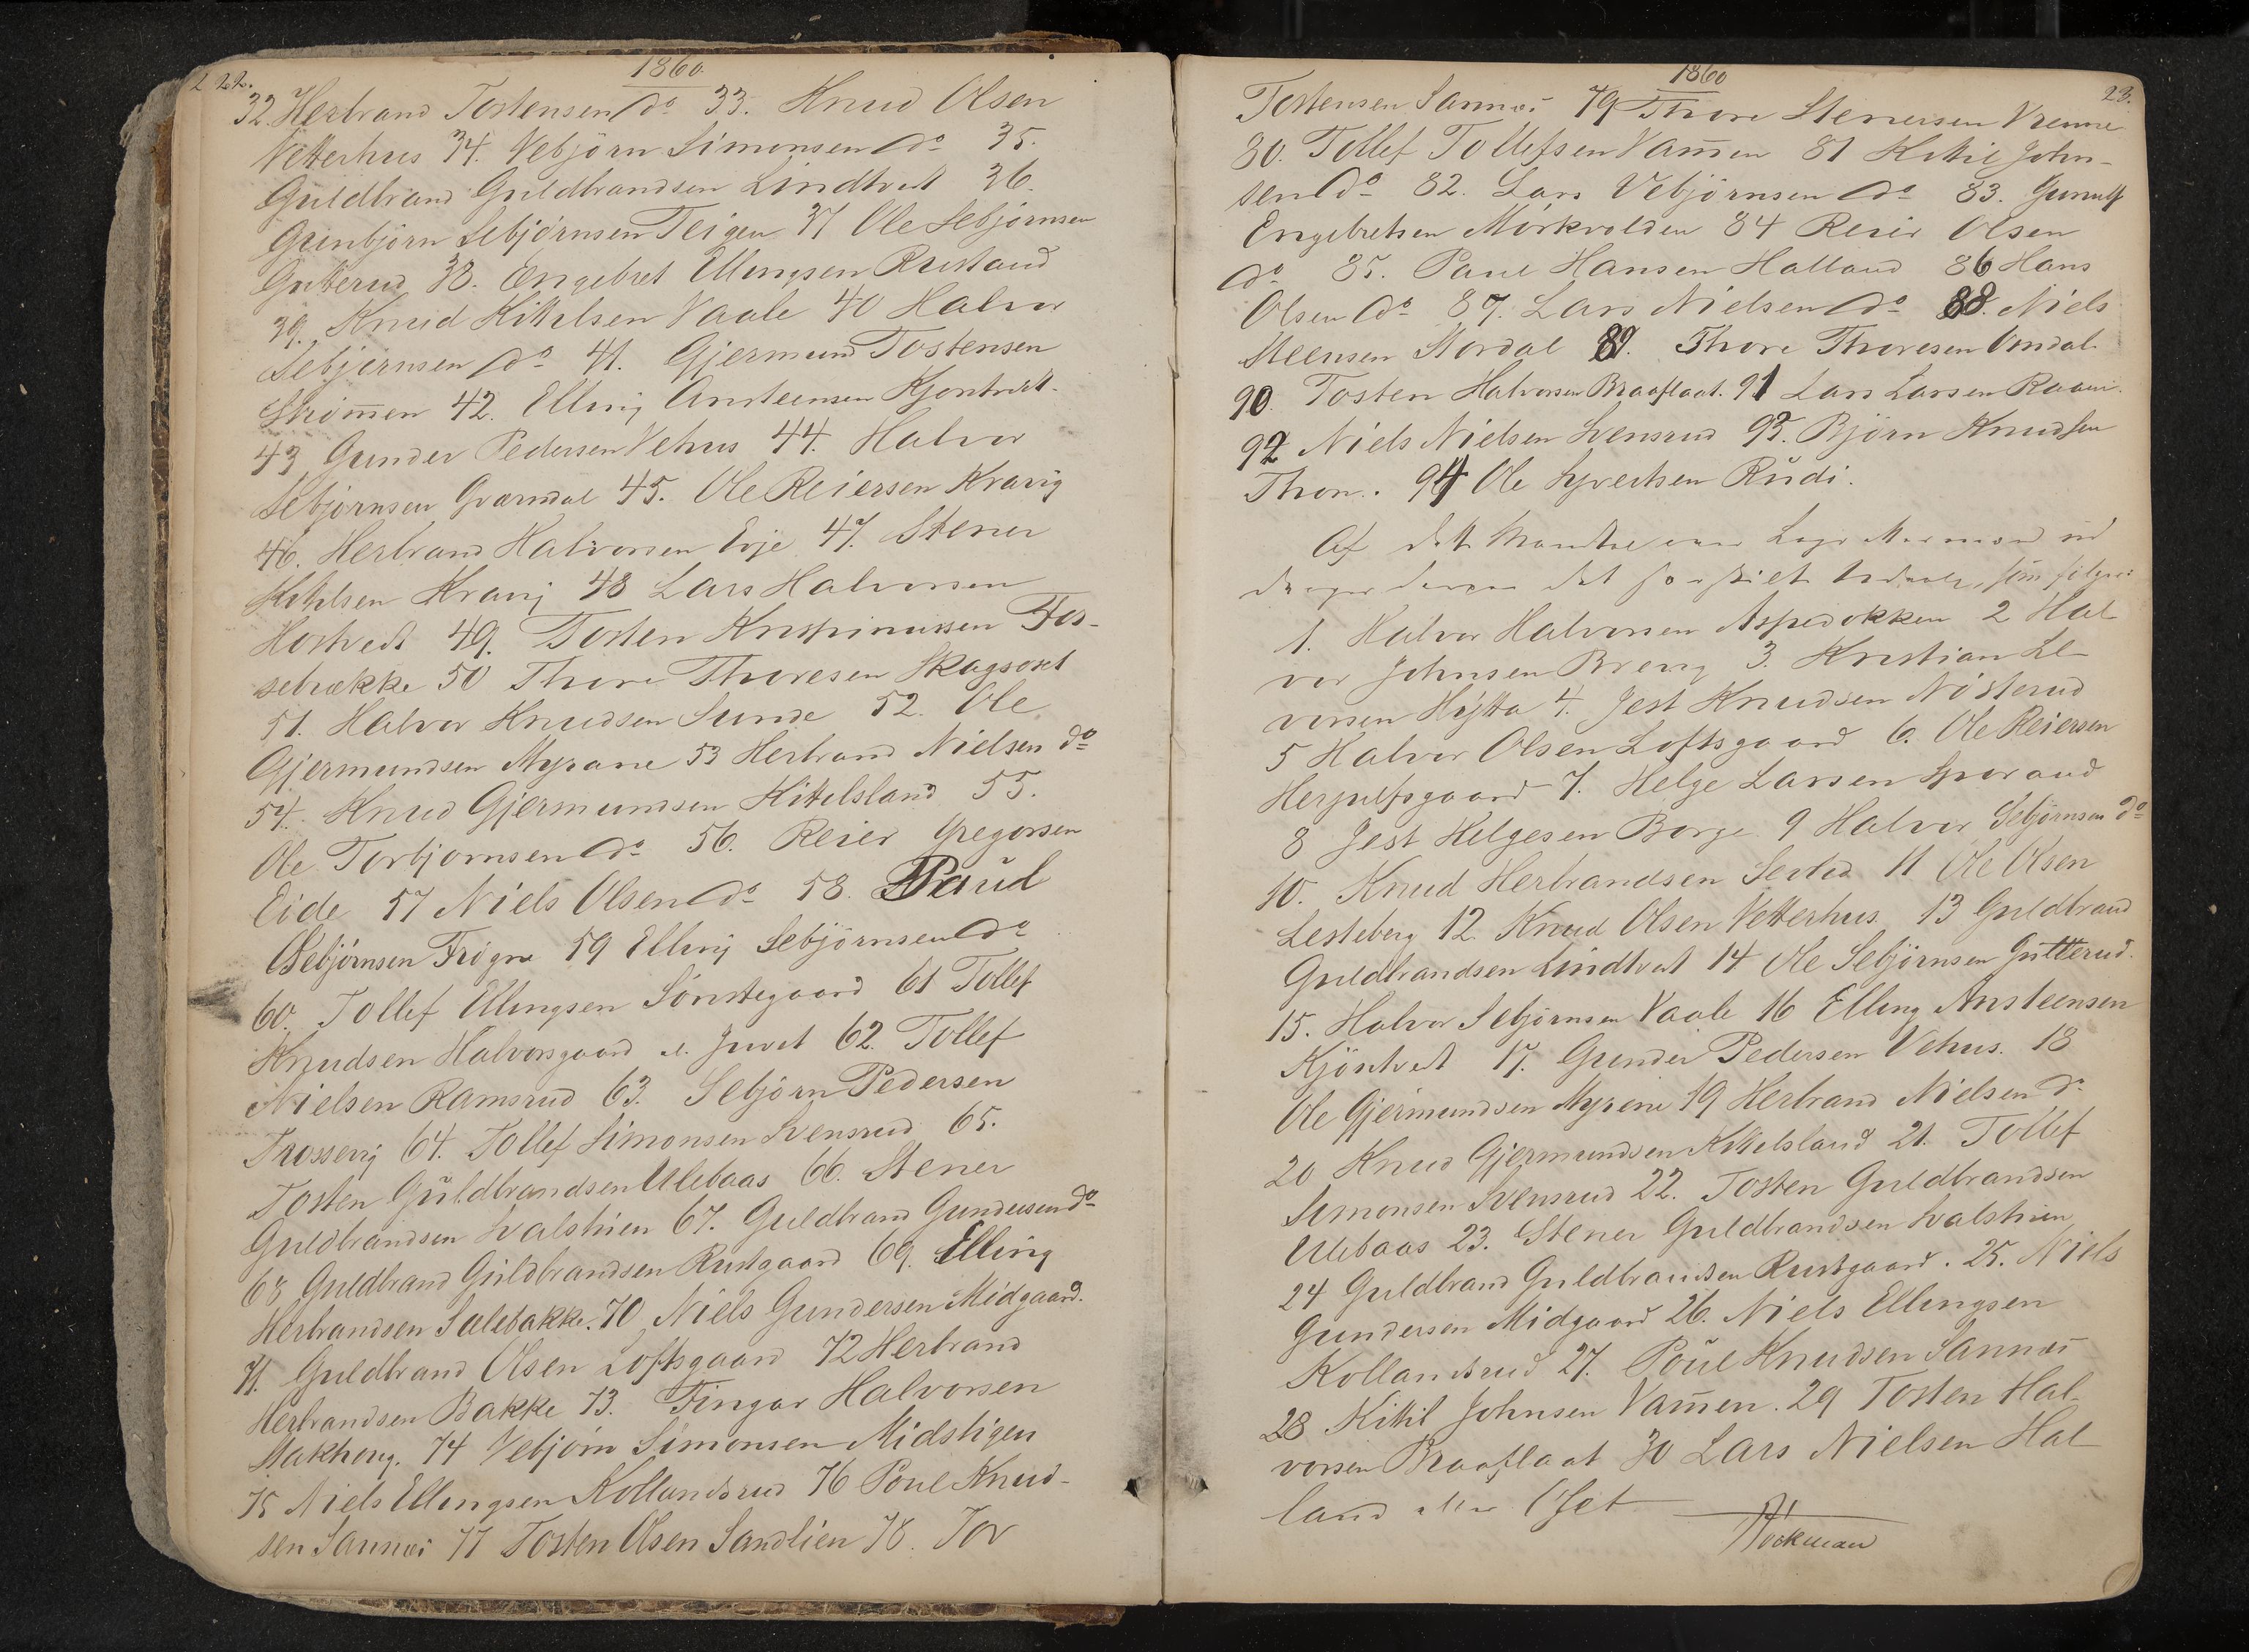 22.
1860.
32. Herbrand Tostensen do 33. Knud Olsen
Vetterhus 34. Vebjörn Simonsen do 35.
Guldbrand Guldbrandsen Lindtvet 36.
Gunbjörn Sebjörnsen Teigen 37 Ole Sebjörnsen
Gutterud 38. Engebret Ellingsen Rustand
39. Knud Kittelsen Vaale 40 Halvor
Sebjörnsen do 41. Gjermund Tostensen
Strömen 42. Elling Ansteensen Kjöntvet.
43 Gunder Pedersen Vehus 44. Halvor
Sebjörnsen Qværndal 45. Ole Reiersen Kravig
46. Herbrand Halvorsen Evje 47. Stener
Kittelsen Kravij 48 Lars Halvorsen
Hostvedt 49. Tosten Krispinussen Fos-
sebrække 50 Thore Thoresen Skagsoset
51. Halvor Knudsen Sunde 52. Ole
Gjermundsen Myrane 53 Herbrand Nielsen do
54. Knud Gjermundsen Kittelsland 55.
Ole Torbjornsen do 56. Reier Gregorsen
Eide 57 Niels Olsen do 58. Paul
Asbjörnsen Frögne 59 Elling Sebjörnsen do
60. Tollef Ellingsen Sönstegaard 61 Tollef
Knudsen Halvorsgaard e. Juvet 62. Tollef
Nielsen Ramsrud 63. Sebjörn Pedersen
Trossevig 64. Tollef Simonsen Svensrud 65.
Tosten Guldbrandsen Ulebaas 66. Stener
Guldbrandsen Svalstuen 67. Guldbrand Gundersen do
68 Guldbrand Guldbrandsen Rustgaard 69. Elling
Herbrandsen Sælebakke. 70 Niels Gundersen Midgaard.
71. Guldbrand Olsen Loftsgaard 72 Herbrand
Herbrandsen Bakke 73. Fingar Halvorsen
Stakhoug. 74 Vebjörn Simonsen Midstigen
75 Niels Ellingsen Kollandsrud 76 Poul Knud-
sen Sannæs 77 Tosten Olsen Sandlien 78. Tor
1860
23.
Tostensen Sannæs 79 Thore Stenersen Vrenne
80. Tollef Tollefsen Vamen 81 Kittil John-
sen do 82. Lars Vebjörnsen do 83. Gunulf
Engebretsen Mörkvolden 84 Reier Olsen
do 85. Paul Hansen Halland 86 Hans
Olsen do 87. Lars Nielsen do 88. Niels
Steensen Stordal 89. Thore Thoresen Vindal.
90. Tosten Halvorsen Braaflaat. 91 Lars Larsen Raaen.
92 Niels Nielsen Svensrud 93. Björn Knudsen
Thon. 94 Ole Syvertsen Rudi.
Af dette Mandtal
det som følger
1. Halvor Halvorsen Aspedokken 2 Hal
vor Johnsen Brevig 3. Kristian Le-
vorsen Hytta 4. Jest Knudsen Nösterud
5 Halvor Olsen Loftsgaard 6. Ole Reiersen
Herjulfsgaard 7. Helge Larsen Sporand
8 Jest Helgesen Borge 9 Halvor Sebjörnsen do
10. Knud Herbrandsen 11 Ole Olsen
Lesteberg 12. Knud Olsen Vetterhus. 13 Guldbrand
Guldbrandsen Lindtvet 14 Ole Sebjörnsen Gutterud.
15. Halvor Sebjörnsen Vaale 16 Elling Ansteensen
Kjöntvet 17. Gunder Pedersen Vehus. 18
Ole Gjermundsen Myrene 19 Herbrand Nielsen do
20 Knud Gjermundsen Kittelsland 21. Tollef
Simonsen Svensrud 22. Tosten Guldbrandsen
Ulebaas 23. Stener Guldbrandsen Svalstuen
24 Guldbrand Guldbrandsen Rustgaard. 25. Niels
Gundersen Midgaard 26. Niels Ellingsen
Kollandsrud 27. Poul Knudsen Sannæs
28 Kittil Johnsen Vamen. 29 Tosten Hal-
vorsen Braaflaat 30 Lars Nielsen Hal-
land